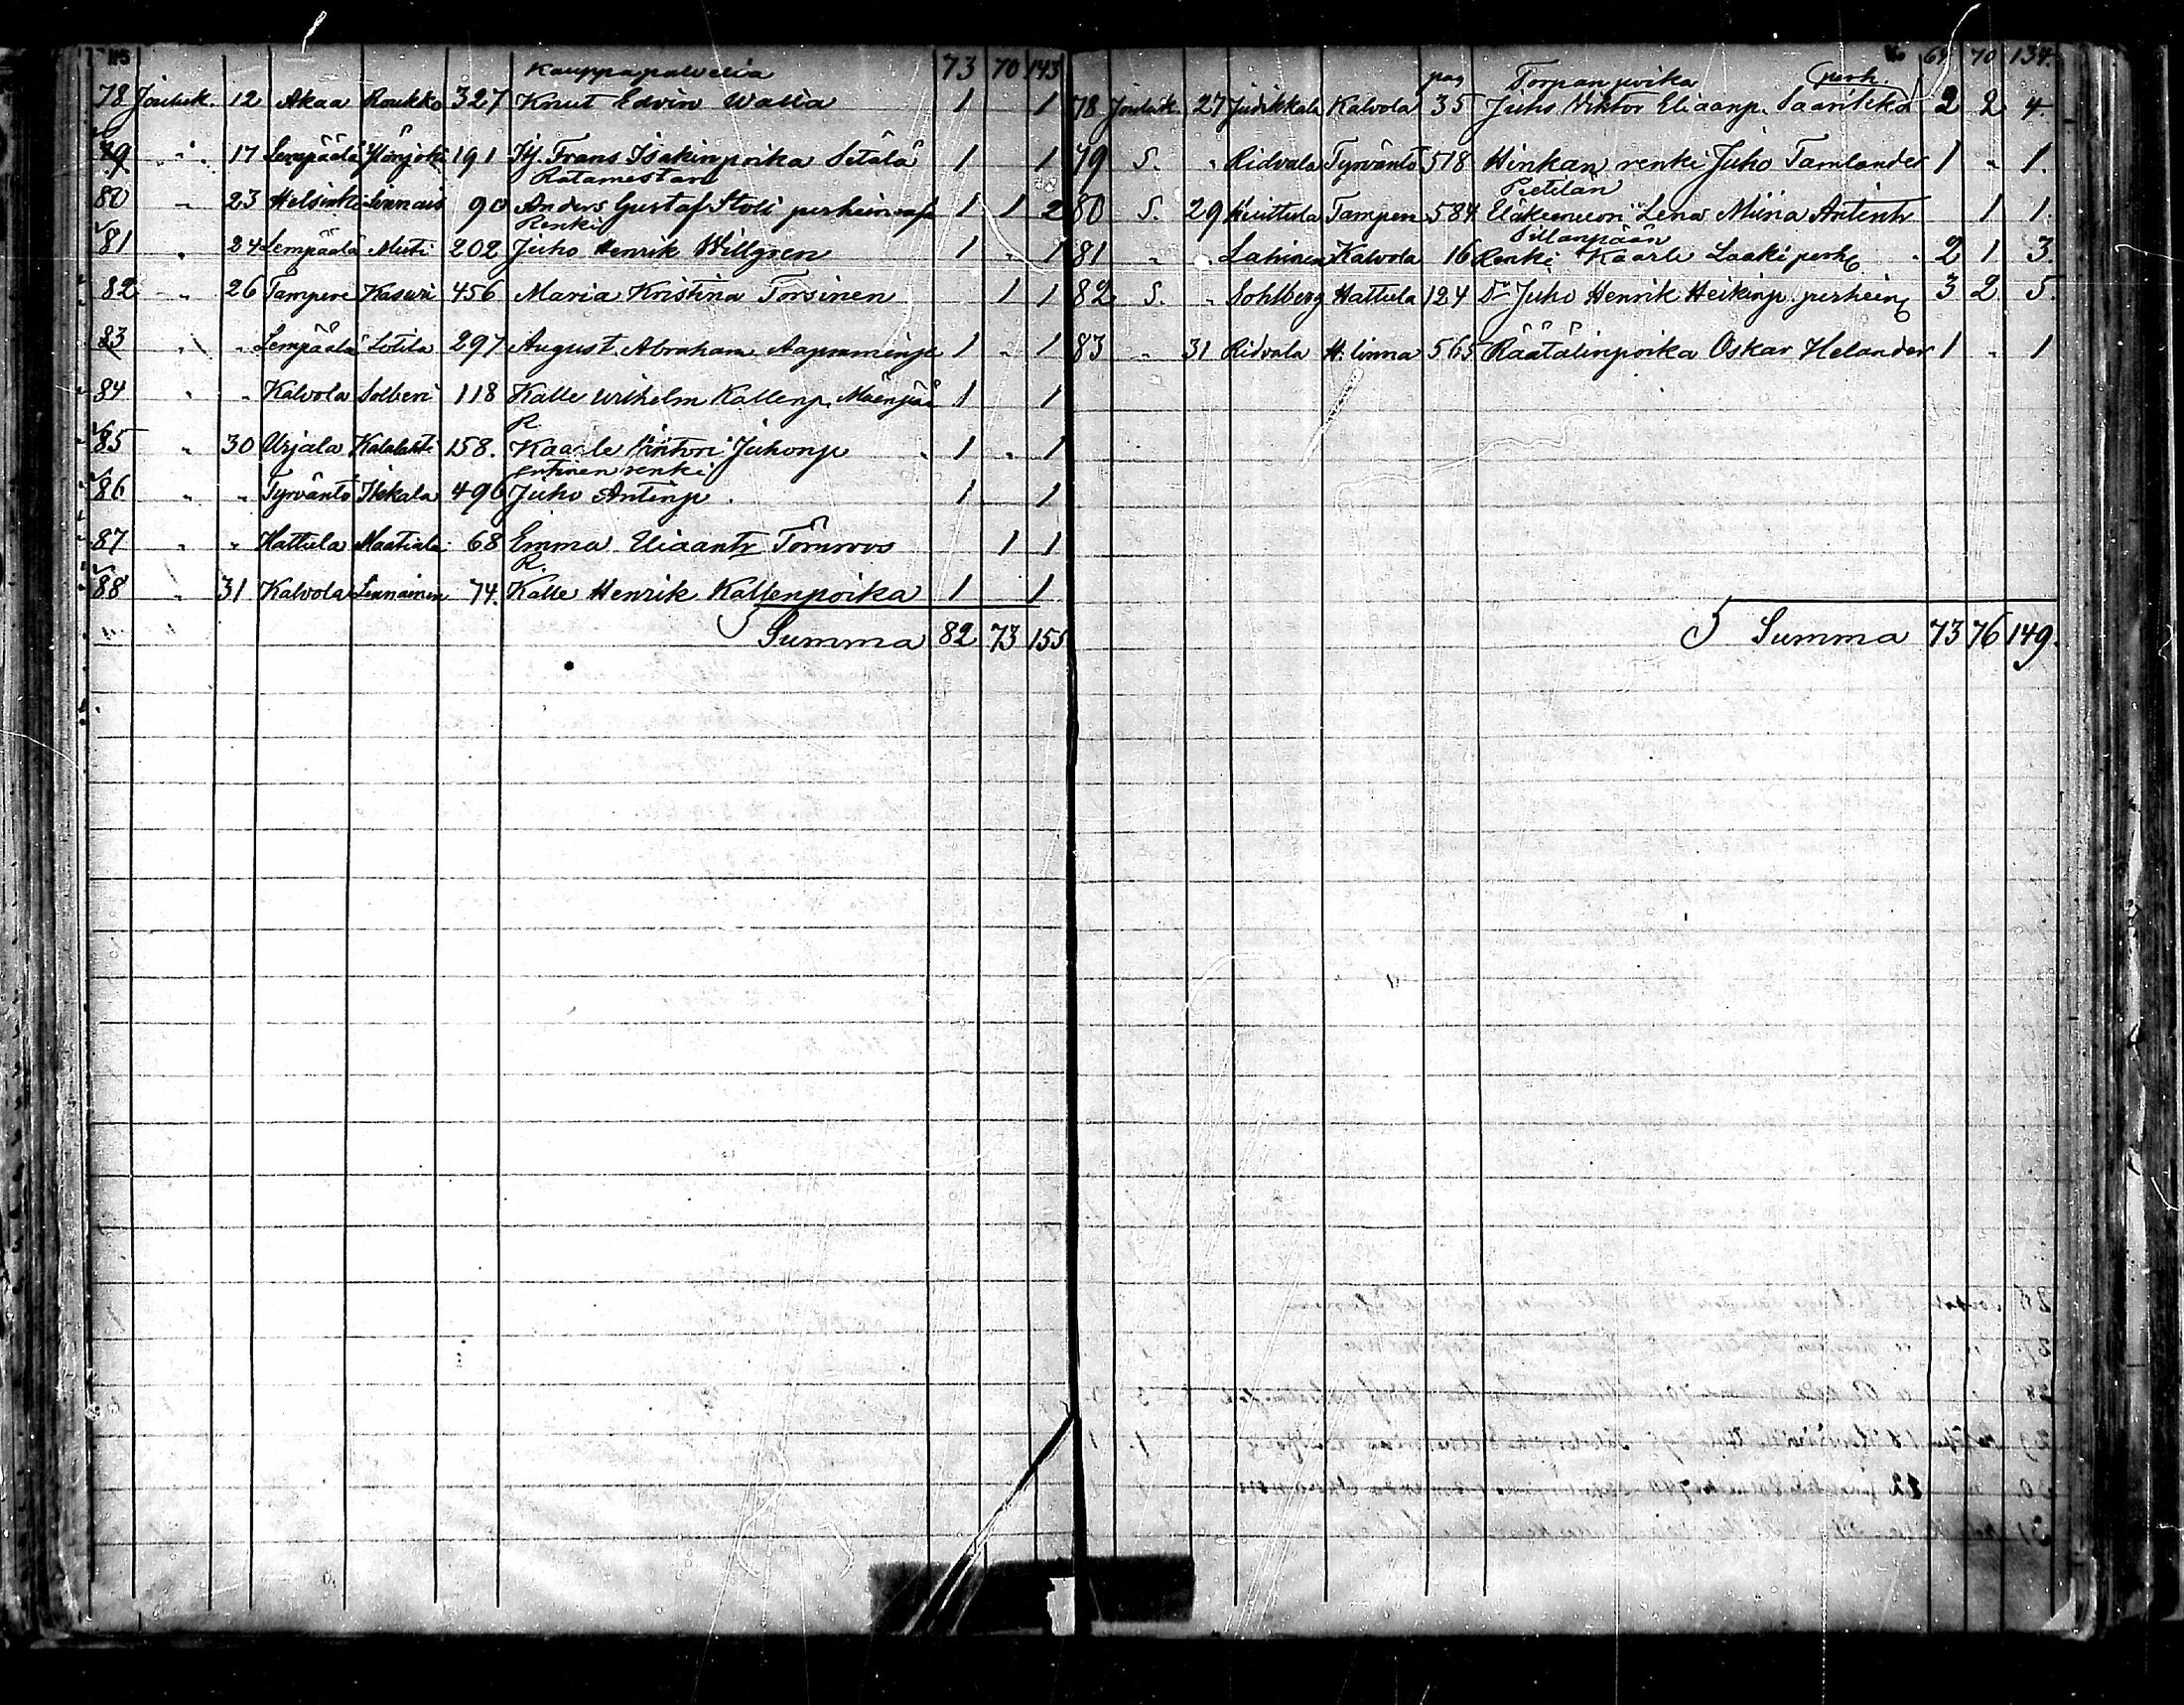 115 73 70 143
Kauppapalvelia
78 Jouluk. 12 Akaa Roukko 327 Knut Edvin Walia 1 1
79 " 17 Lempäälä Ylönjoki 191 Itj. Frans Isakinpoika Setälä 1 1
Ratamestari
80 " 23 Helsinki Linnais 90 Anders Gustaf Stoli perheineen 1 1 2
Renki
81 " 24 Lempäälä Muti 202 Juho Henrik Willgren 1 " 1
82 " 26 Tampere Kasuri 456 Maria Kristina Forsinen 1 1
83 " " Lempäälä Lotila 297 August Abraham Aapraminp 1 " 1
84 " " Kalvola Solberi 118 Kalle Wilhelm Kallenp. Mäenpää 1 1
R.
85 " 30 Urjala Kalalahti 158. Kaarle Vihtori Juhonp 1 " 1
entinen renki
86 " " Tyrväntö Ikkala 496 Juho Antinp. 1 1
87 " " Hattula Maatiala 68 Emma Eliaantr Törnroos 1 1
R.
88 " 31 Kalvola Linnainen 74. Kalle Henrik Kallenpoika 1 1
Summa 82 73 155
69 70 134.
pag Torpanpoika perh.
78 Jouluk. 27 Judikkala Kalvola 35 Juho Viktor Eliaanp. Saarikka 2 2 4.
79 S. " Ridvala Tyrväntö 518 Hinkan renki Juho Tamlander 1 " 1.
Pietilän
80 S. 29 Huittula Tampere 584 Eläkemuori Lena Miina Antintr 1 1.
Sillanpään
81 " " Lahinen Kalvola 16 Renki Kaarle Laaki perh 2 1 3.
82 S. " Sohlberg Hattula 124 Do Juho Henrik Heikinp. perhein 3 2 5.
83 " 31 Ridvala H:linna 565 Räätälinpoika Oskar Helander 1 " 1
Summa 73 76 149.